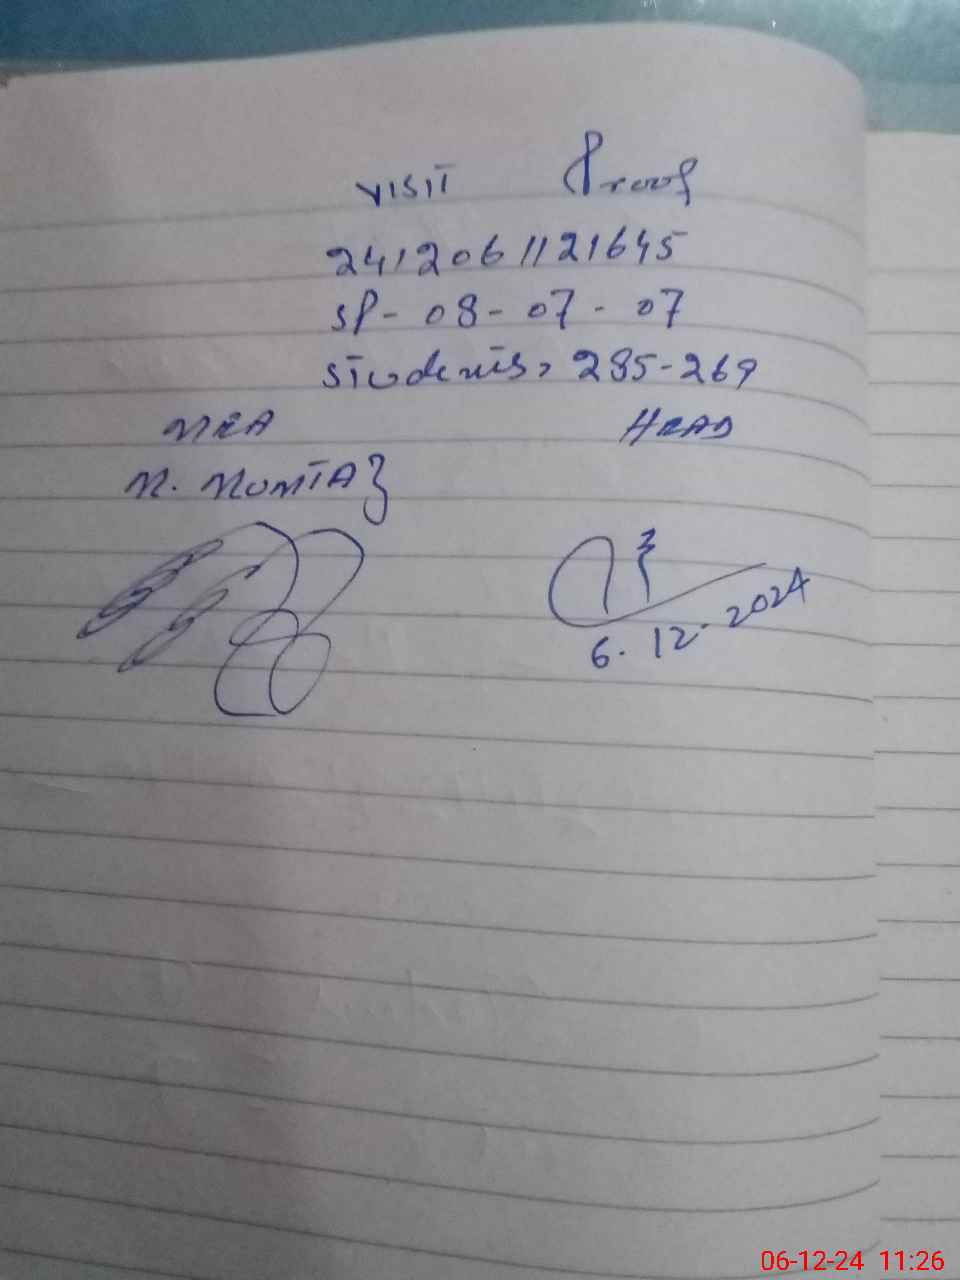 VISIT Proof
2412061121645
SP-08-07-07
Students, 285-269
MEA HEAD
M. MUMTAZ
6.12.2024
06-12-24 11:26